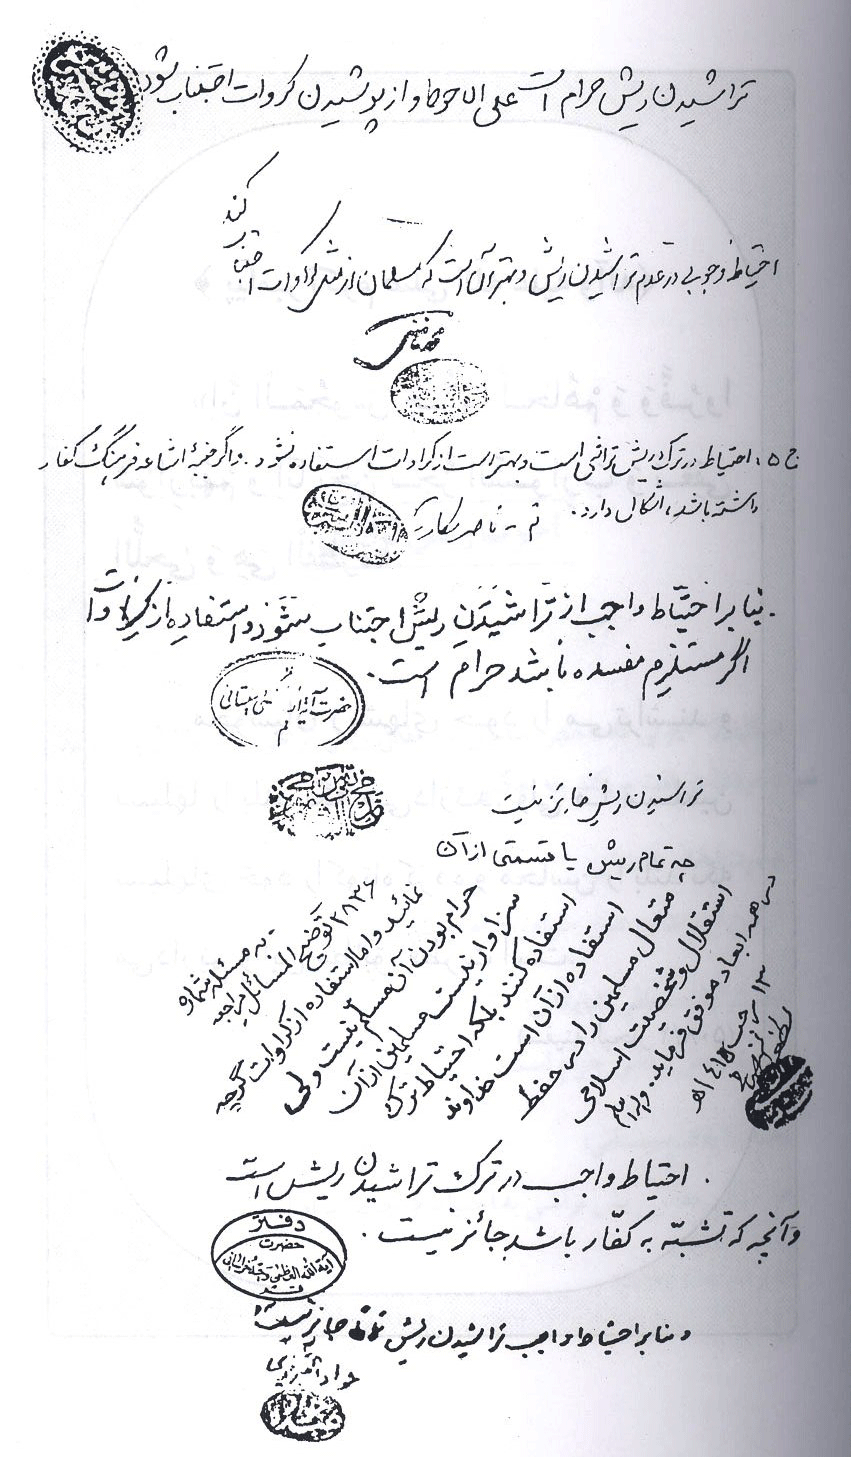 تراشیدن ریش حرام است علی الاحوط و از پوشیدن کروات اجتناب شود
احتیاط وجوبی در عدم تراشیدن ریش و بهتر آن است که مسلمان از مثل کراوات اجتناب کند
ج ۵، احتیاط در ترک ریش تراشی است و بهتر است از کراوات استفاده نشود. و اگر جنبهٔ اشاعه فرهنگ کفار
داشته باشد، اشکال دارد.
قم - ناصر مکارم
. بنا بر احتیاط واجب از تراشیدن ریش اجتناب شود و استفاده از کراوات
اگر مستلزم مفسده باشد حرام است.
حضرت آیة الله سیستانی
قم
تراشیدن ریش جائز نیست
چه تمام ریش یا قسمتی از آن
- به مسئله شماره
۲۸۳۶ توضیح المسائل مراجعه
نمائید و اما استفاده از کراوات گرچه
حرام بودن آن مسلم نیست ولی
سزاوار نیست مسلمین از آن
استفاده کنند بلکه احتیاط ترک
استفاده از آن است خداوند
متعال مسلمین را در حفظ
استقلال و شخصیت اسلامی
در همه ابعاد موفق فرماید. والسلام
۱۳ رجب ۱۴۱۵ هـ
لطف الله صافی
. احتیاط واجب در ترک تراشیدن ریش است
و آنچه که تشبّه به کفّار باشد جائز نیست.
دفتر
حضرت
آیة الله العظمی وحید خراسانی
بنا بر احتیاط واجب تراشیدن ریش جایز نیست
جواد تبریزی